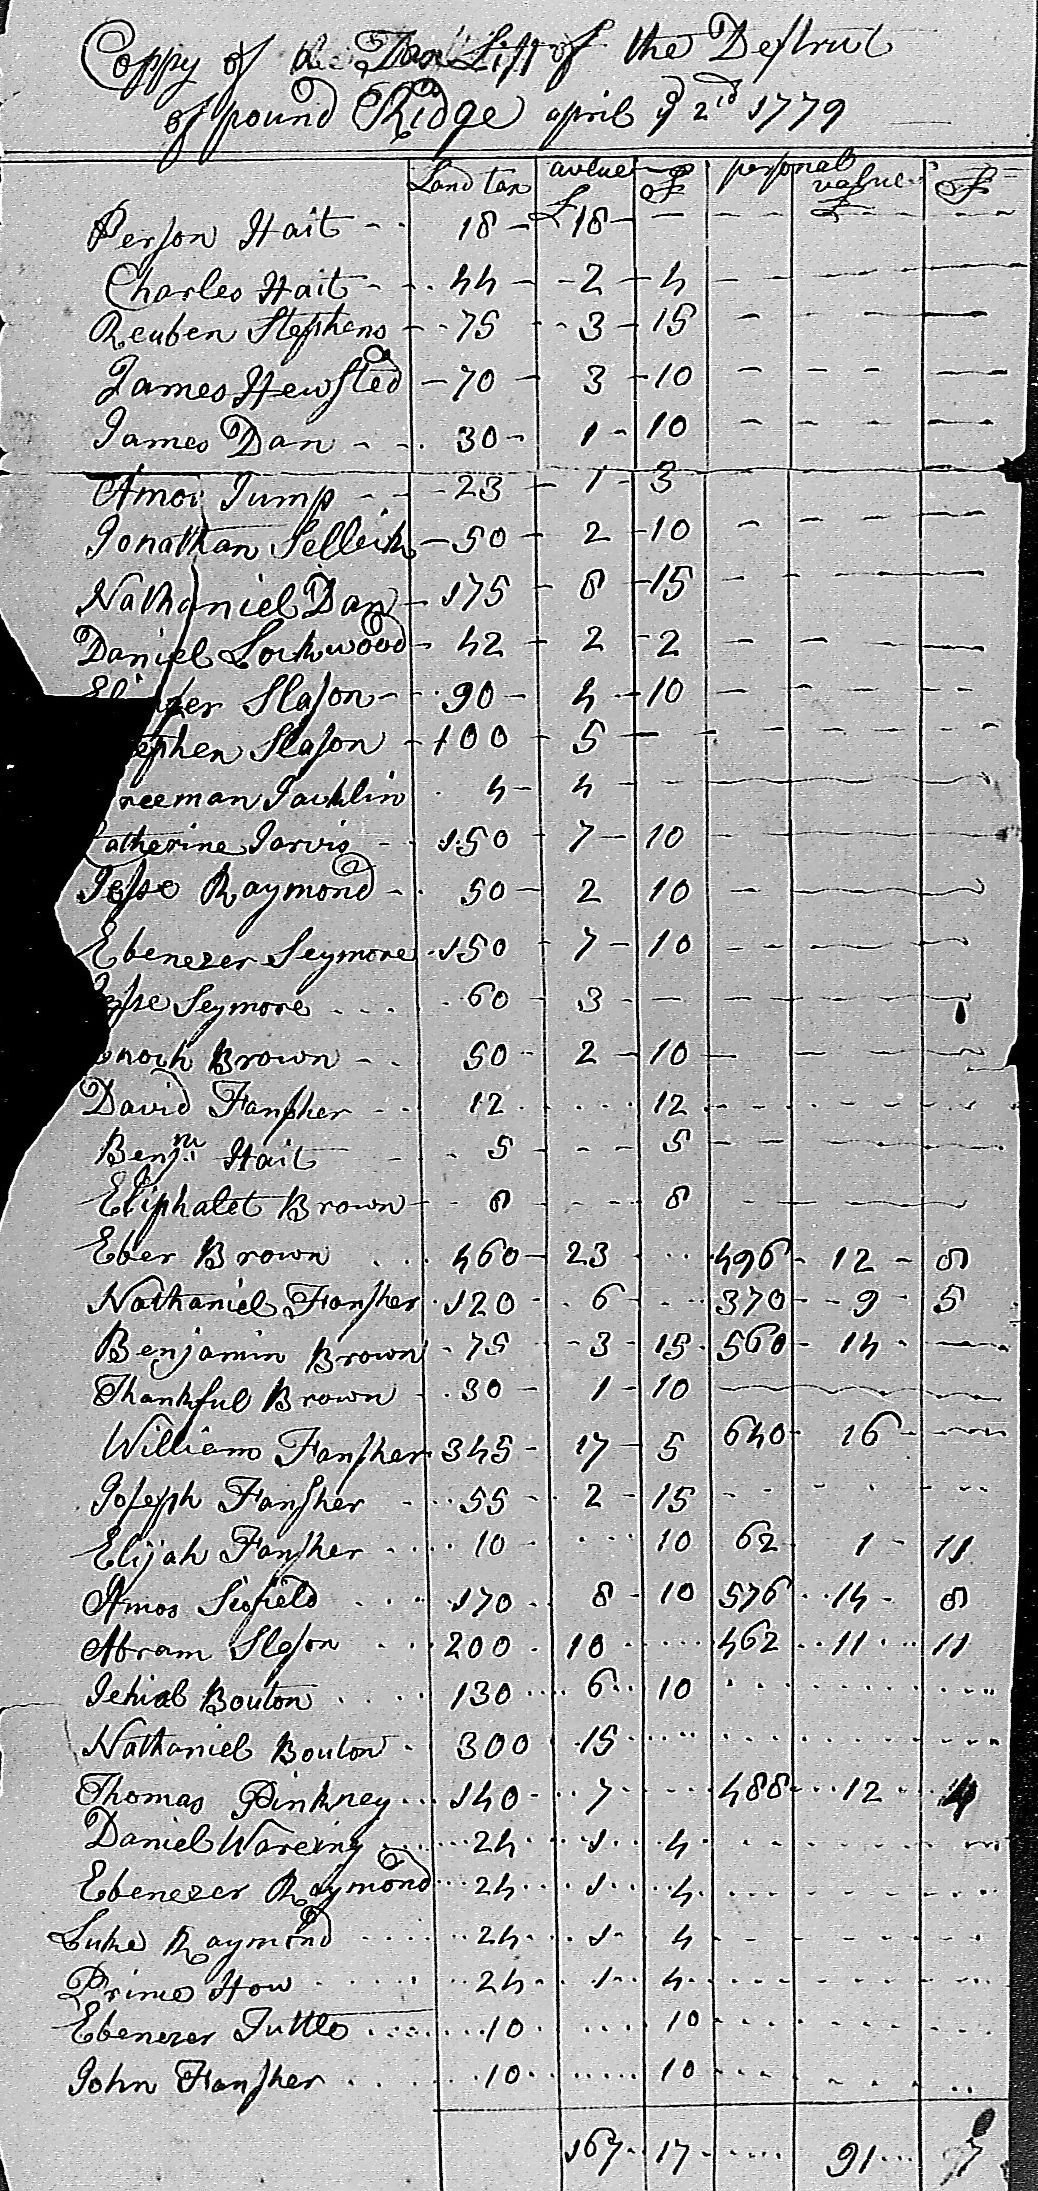 Coppy of the Tax List of the Destrict
of pound Ridge april ye 2nd 1779
Land tax value £ S personal value £ S
Person Hait 18 £18
Charles Hait 44 2 4
Reuben Stephens 75 3 15
James Hewsted 70 3 10
James Dan 30 1 10
Amos Jump 23 1 3
Jonathan Selleik 50 2 10
Nathaniel Dan 175 8 15
Daniel Lockwood 42 2 2
Slason 90 4 10
ephen Slason 100 5
reeman Jacklin 4 4
Catherine Jarvis 150 7 10
Jesse Raymond 50 2 10
Ebenezer Seymore 150 7 10
esse Seymore 60 3
noch Brown 50 2 10
David Fansher 12 12
Benjm Hait 5 5
Eliphalet Brown 8 8
Eber Brown 460 23 496 12 8
Nathaniel Fansher 120 6 370 9 5
Benjamin Brown 75 3 15 560 14
Thankful Brown 30 1 10
William Fansher 345 17 5 640 16
Joseph Fansher 55 2 15
Elijah Fansher 10 10 62 1 11
Amos Scofield 170 8 10 576 14 8
Abram Slason 200 10 462 11 11
Jehial Bouton 130 6 10
Nathaniel Bouton 300 15
Thomas Pinkney 140 7 488 12 4
Daniel Wareing 24 1 4
Ebenezer Raymond 24 1 4
Luke Raymond 24 1 4
Prime How 24 1 4
Ebenezer Tuttle 10 10
John Fansher 10 10
167 17 91 7